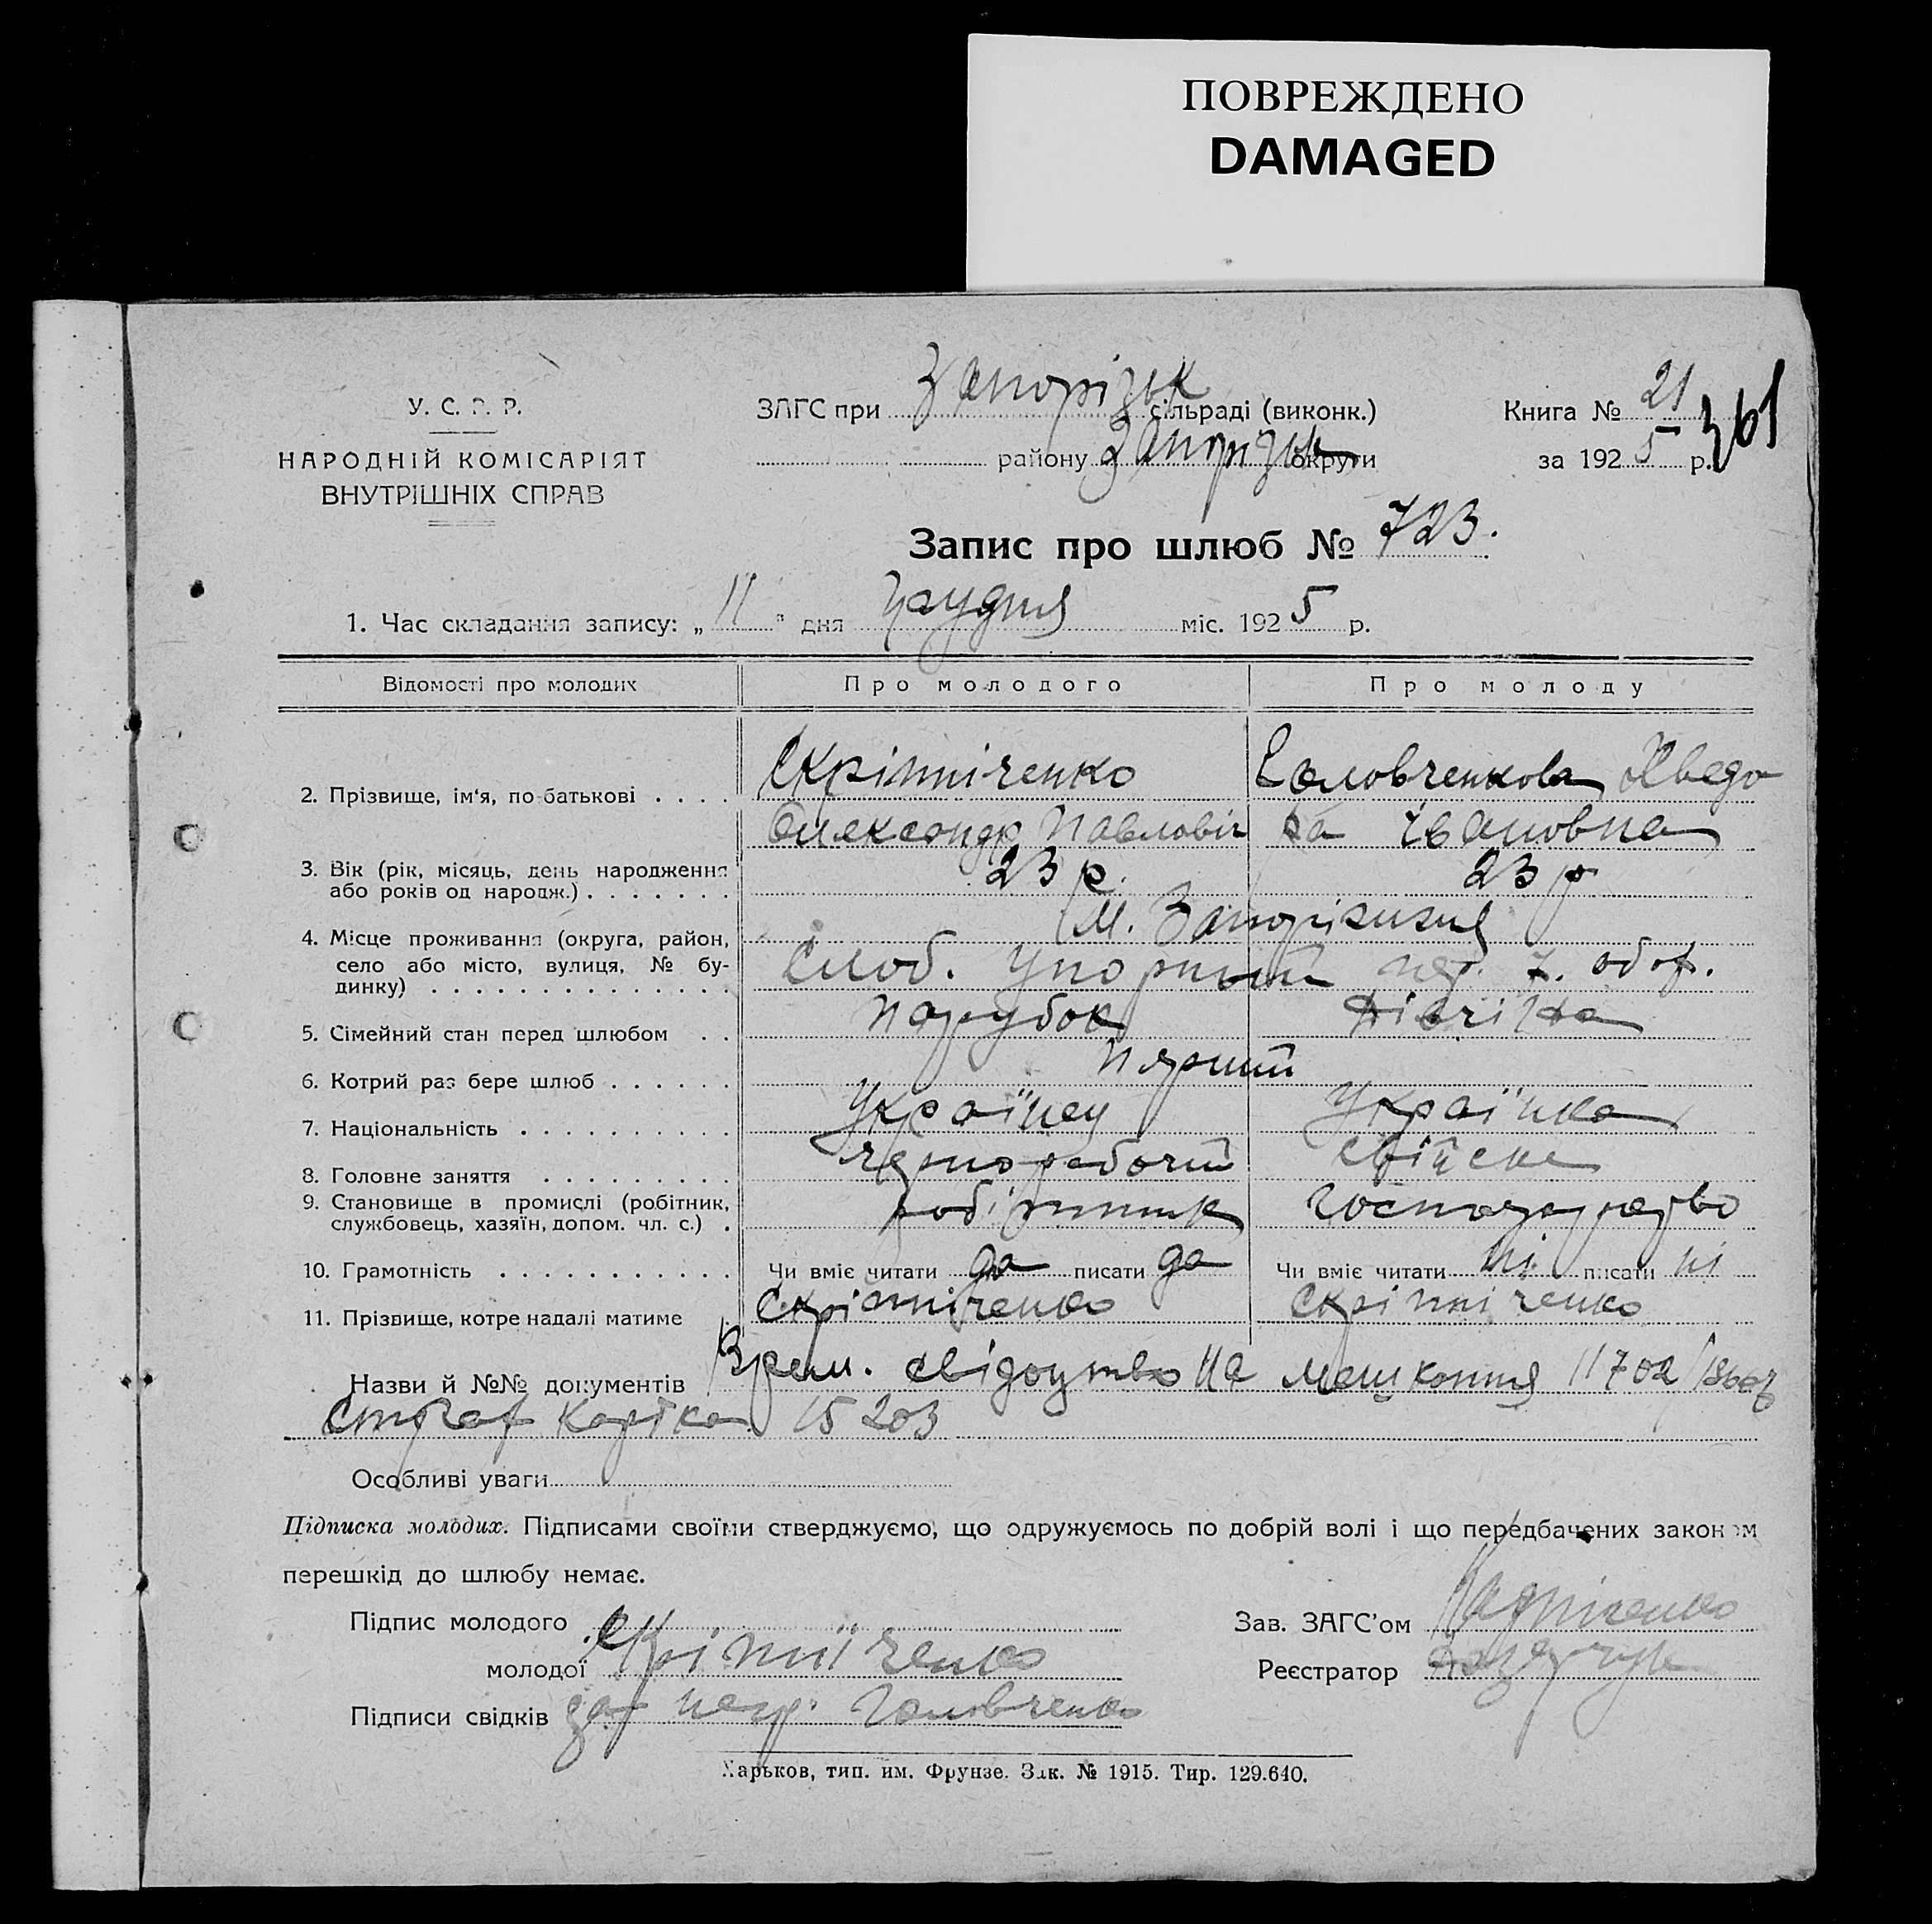 ПОВРЕЖДЕНО
DAMAGED
У. С. Р. Р.
НАРОДНІЙ КОМІСАРІЯТ
ВНУТРІШНІХ СПРАВ
ЗАГС при Запорізьк сільраді (виконк.)
району Запорізьк округи
Книга № 21
361
за 1925 р.
Запис про шлюб № 723.
1. Час складання запису: „11" дня грудня міс. 1925 р.
Відомості про молодих Про молодого Про молоду
2. Прізвище, ім'я, по-батькові . . . . Скріпніченко Головченкова Хведо
Олександр Павловіч ра Івановна
3. Вік (рік, місяць, день народження 23 р. 23 р
або років од народж.) . . . . . . .
4. Місце проживання (округа, район, М. Запоріжжя
село або місто, вулиця, № бу- Слоб. 7.
динку) . . . . . . . . . . . . . .
5. Сімейний стан перед шлюбом . . Парубок Дівчіна
6. Котрий раз бере шлюб . . . . . . Перший
7. Національність . . . . . . . . . . Українец Українка
8. Головне заняття . . . . . . . . . чернорабочий свійске
9. Становище в промислі (робітник, робітник господарство
службовець, хазяїн, допом. чл. с.) .
10. Грамотність . . . . . . . . . . . Чи вміє читати да писати да Чи вміє читати ні писати ні
11. Прізвище, котре надалі матиме Скріпніченко Скріпніченко
Назви й №№ документів Врем. свідоцтво на мешкання 11702
Страх картка 15203
Особливі уваги
Підписка молодих. Підписами своїми стверджуємо, що одружуємось по добрій волі і що передбачених законом
перешкід до шлюбу немає.
Підпис молодого Скріпніченко
молодої
Підписи свідків за негр. Головченко
Зав. ЗАГС'ом
Реєстратор
Харьков, тип. им. Фрунзе. Зак. № 1915. Тир. 129.640.